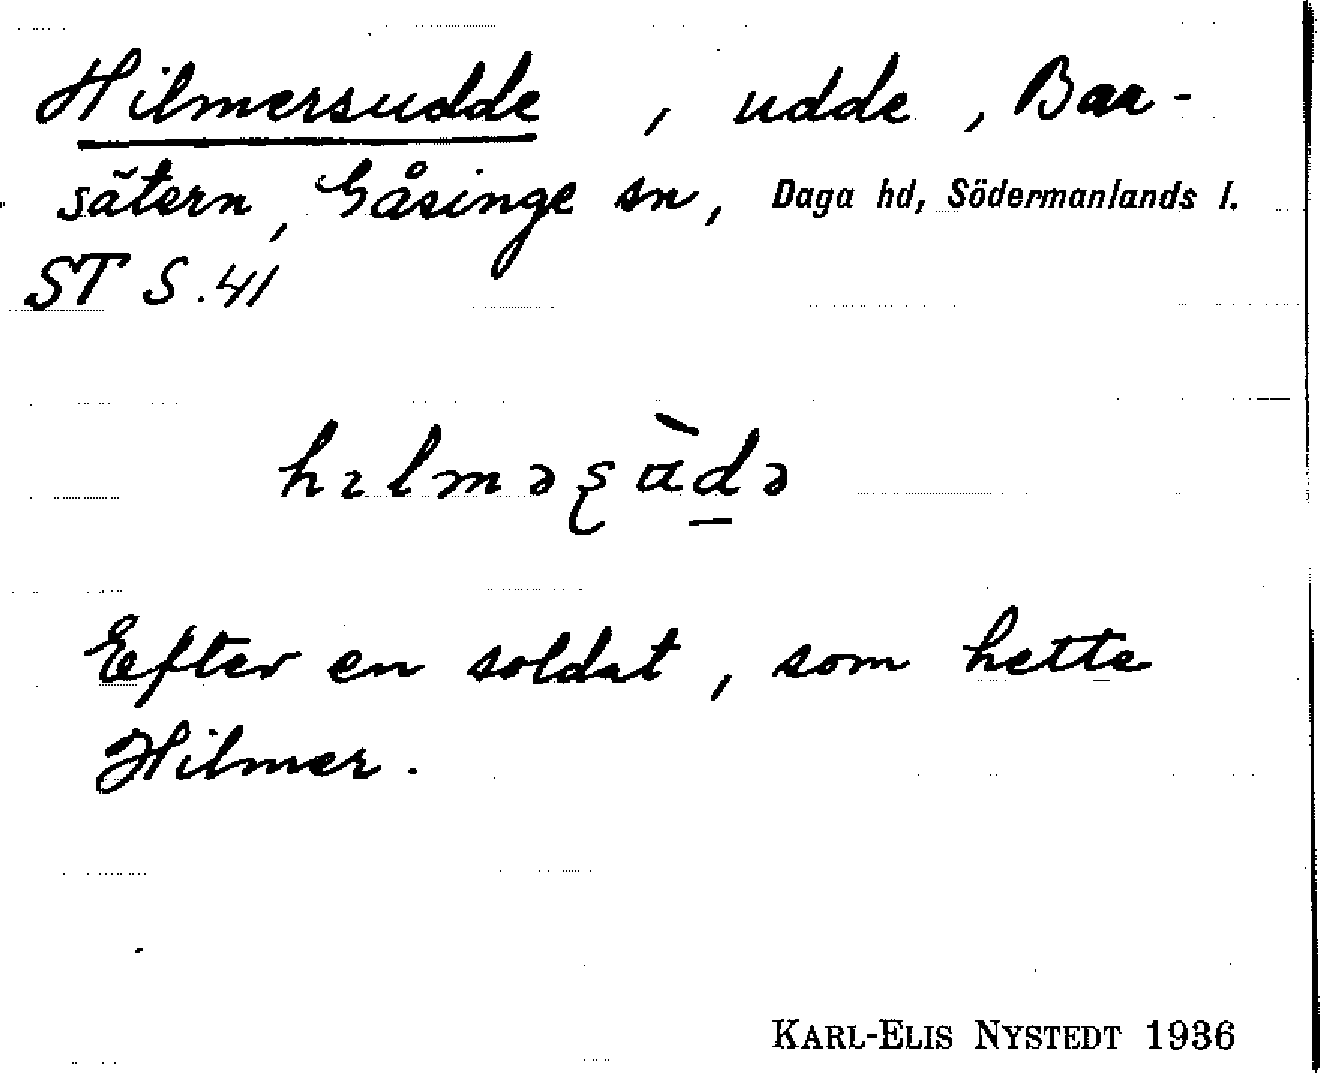 Hilmersudde , udde , Baa-
sätern, Gåsinge sn, Daga hd, Södermanlands l.
ST S.41
hɪlməʂàd̠ə
Efter en soldat, som hette
Hilmer.
KARL-ELIS NYSTEDT 1936